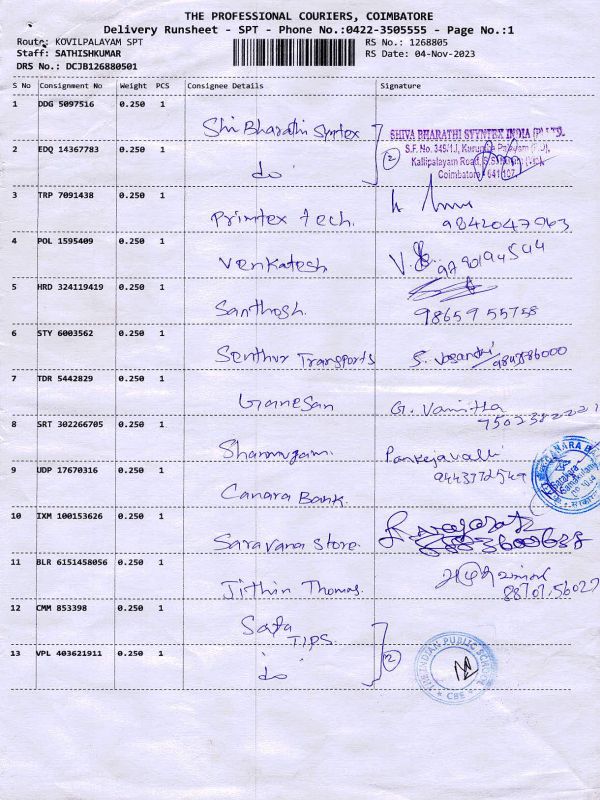 THE PROFESSIONAL COURIERS, COIMBATORE
Delivery Runsheet - SPT - Phone No.:0422-3505555 - Page No.:1
Route: KOVILPALAYAM SPT
RS No.: 1268805
Staff: SATHISHKUMAR
RS Date: 04-Nov-2023
DRS No.: DCJB126880501
S No Consignment No Weight PCS Consignee Details Signature
1 DDG 5097516 0.250 1
Shri Bharathi Syntex
SHIVA BHARATHI SYYNTEX INDIA (P) LTD.
S.F. No. 345/1J, Kurumba Palayam (P.O),
2 EDQ 14367783 0.250 1
Kallipalayam Road, S.S. Kulam (Via),
do (2) Coimbatore - 641 107.
3 TRP 7091438 0.250 1
Printex tech. 9842047963
4 POL 1595409 0.250 1
Venkatesh V.
5 HRD 324119419 0.250 1
Santhosh. 9865955758
6 STY 6003562 0.250 1
Senthur Transports S. Vasanthi
7 TDR 5442829 0.250 1
Ganesan G. Vanitha
8 SRT 302266705 0.250 1
Shanmugam. Pankejavalli
9443772549
9 UDP 17670316 0.250 1
Canara Bank.
10 IXM 100153626 0.250 1
Saravana Store.
11 BLR 6151458056 0.250 1
Jithin Thomas.
12 CMM 853398 0.250 1
Safa
TIPS.
13 VPL 403621911 0.250 1
do (2)
THE INDIAN PUBLIC SCHOOL
CBE